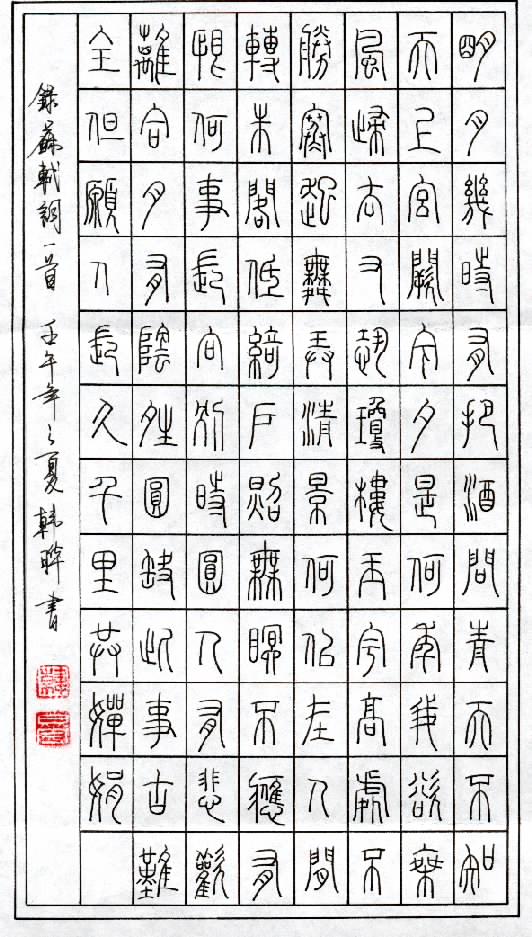 明月幾時有把酒問青天不知
天上宮闕今夕是何年我欲乘
風歸去又恐瓊樓玉宇高處不
勝寒起舞弄清景何似在人間
轉朱閣低綺戶照無眠不應有
恨何事長向別時圓人有悲歡
離合月有陰晴圓缺此事古難
全但願人長久千里共嬋娟
錄蘇軾詞一首 壬午年之夏韓書